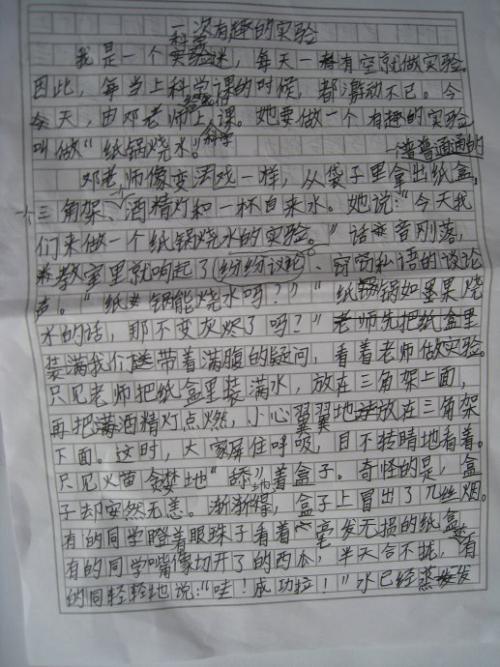 一次有趣的实验
我是一个科学迷，每天一有空就做实验。
因此，每当上科学课的时候，都激动不已。今
今天，由邓老师上课。她要做一个有趣的实验
科学
叫做“纸锅烧水。”
普普通通的
邓老师像变法戏一样，从袋子里拿出纸盒、
三角架、酒精灯和一杯自来水。她说：“今天我
们来做一个纸锅烧水的实验。”话音刚落，
教室里就响起了纷纷议论、窃窃私语的议论
声。“纸锅能烧水吗？”“纸锅如果烧
水的话，那不变灰烬了吗？”老师先把纸盒里
装满我们带着满腹的疑问，看着老师做实验。
只见老师把纸盒里装满水，放在三角架上面，
再把酒精灯点燃，小心翼翼地放在三角架
下面。这时，大家屏住呼吸，目不转睛地看着。
只见火苗地“舔”着盒子。奇怪的是，盒
子却安然无恙。渐渐，盒子上冒出了几丝烟。
有的同学瞪着眼珠子看着毫发无损的纸盒，
有的同学嘴像切开了的西瓜，半天合不拢，有
的同轻轻地说：“哇！成功拉！”水已经蒸发